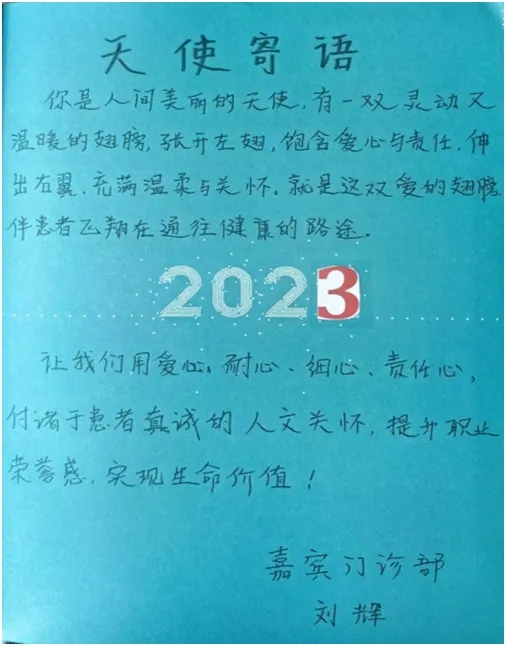 天使寄语
你是人间美丽的天使,有一双灵动又
温暖的翅膀,张开左翅,饱含爱心与责任,伸
出右翼,充满温柔与关怀。就是这双爱的翅膀
伴患者飞翔在通往健康的路途。
2023
让我们用爱心、耐心、细心、责任心,
付诸于患者真诚的人文关怀,提升职业
荣誉感,实现生命价值!
嘉宾门诊部
刘辉